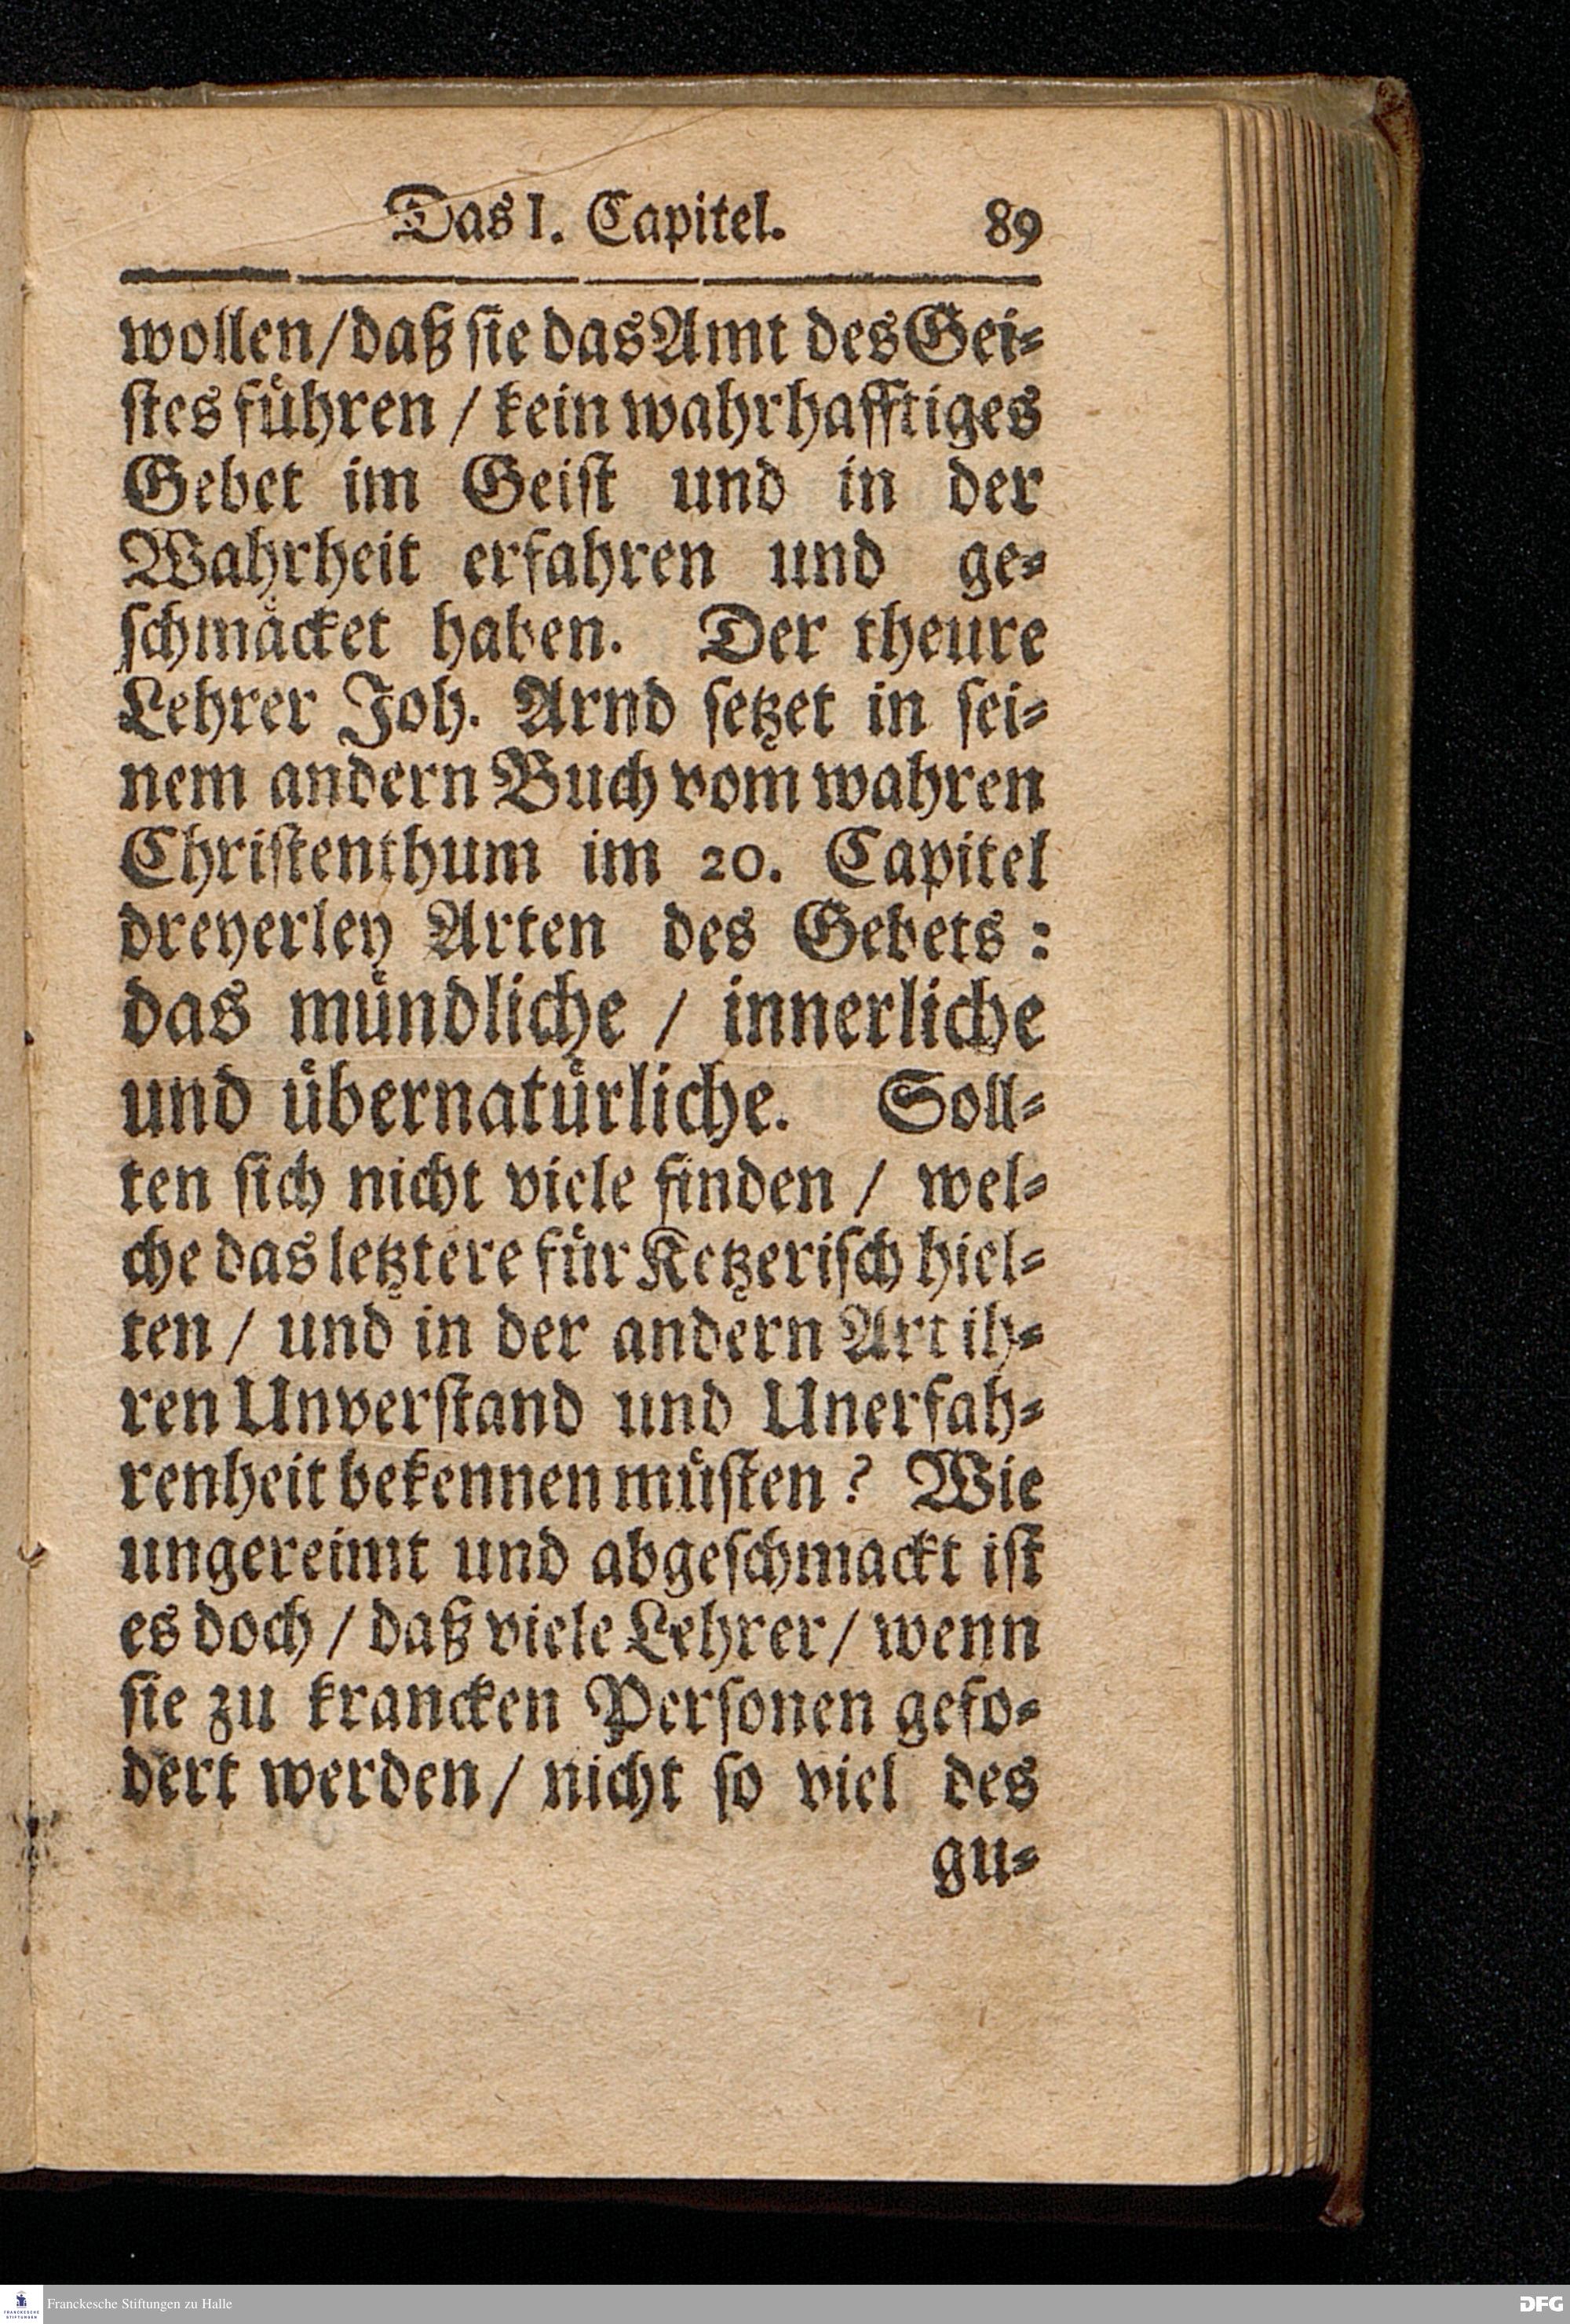 Das I. Capitel. 89
wollen/daß sie das Amt des Gei⸗
stes führen / kein wahrhafftiges
Gebet im Geist und in der
Wahrheit erfahren und ge⸗
schmäcket haben. Der theure
Lehrer Joh. Arnd setzet in sei⸗
nem andern Buch vom wahren
Christenthum im 20. Capitel
dreyerley Arten des Gebets :
das mündliche / innerliche
und übernatürliche. Soll⸗
ten sich nicht viele finden / wel⸗
che das letztere für Ketzerisch hiel⸗
ten / und in der andern Art ih⸗
ren Unverstand und Unerfah⸗
renheit bekennen müsten ? Wie
ungereimt und abgeschmackt ist
es doch / daß viele Lehrer / wenn
sie zu krancken Personen gefo⸗
dert werden / nicht so viel des
gu⸗
FRANCKESCHE STIFTUNGEN
Franckesche Stiftungen zu Halle
DFG